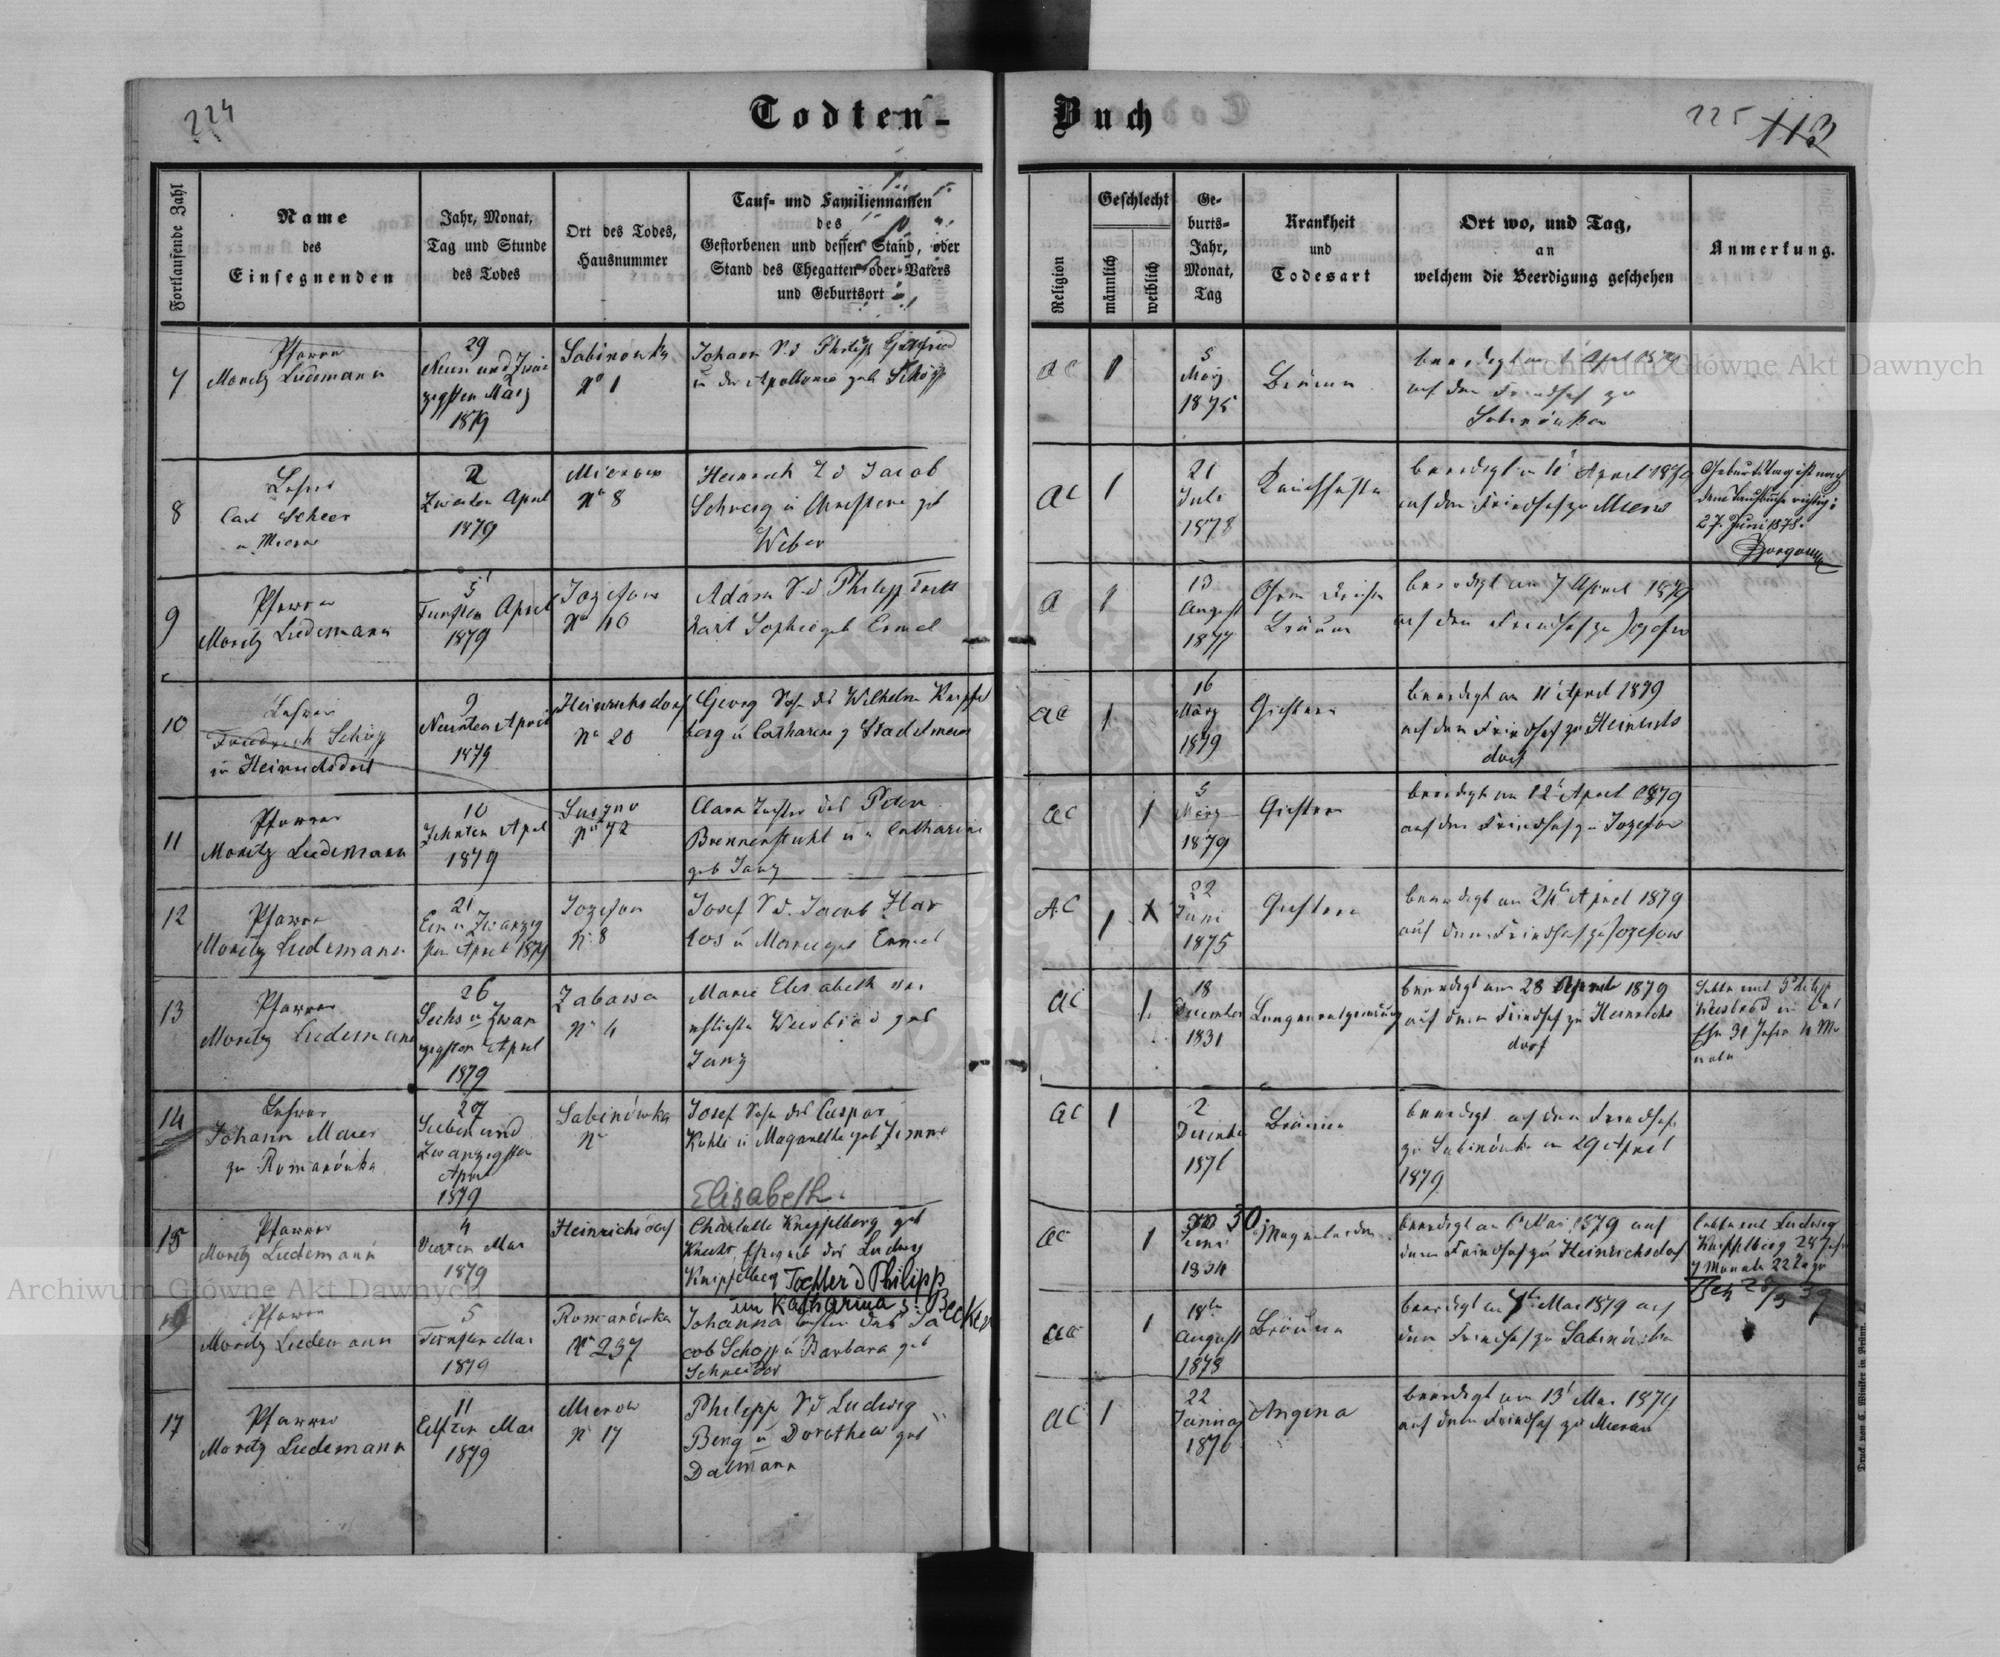 224
Todten-
Buch
225 113
Fortlaufende Zahl
Name
des
Einsegnenden
Jahr, Monat,
Tag und Stunde
des Todes
Ort des Todes,
Hausnummer
Tauf- und Familiennamen
des
Gestorbenen und dessen Stand, oder
Stand des Ehegatten oder Vaters
und Geburtsort
Religion
Geschlecht
männlich
weiblich
Ge-
burts-
Jahr,
Monat,
Tag
Krankheit
und
Todesart
Ort wo, und Tag,
an
welchem die Beerdigung geschehen
Anmerkung.
7
Pfarrer
Moritz Liedemann
29
Neun und Zwan
zigsten März
1879
Sabinowka
No 1
Johann S. d Philipp
u der Apollonia geb Schöpp
AC
1
5
März
1875
Bräune
beerdigt am April 1879
auf dem Friedhof zu
Sabinówka
8
Lehrer
Carl Scheer
Mierow
2
Zweiten April
1879
Mierow
No 8
Heinrich S d Jacob
Schweig u Christine geb
Weber
AC
1
21
Juli
1878
Keuchhusten
beerdigt April 1879
auf dem Friedhof zu Mierow
Geburtstag ist nach
dem Taufbuche richtig:
27. Juni 1878.
9
Pfarrer
Moritz Liedemann
5
Fünften April
1879
Jozefow
No 40
Adam S d Philipp
Sophie geb Ermel
A
1
13
August
1877
Bräune
beerdigt am 7 April 1879
auf dem Friedhof zu Jozefow
10
Lehrer
Friedrich Schöpp
in Heinrichsdorf
9
Neunten April
1879
Heinrichsdorf
No 20
Georg Sohn des Wilhelm Knipfel
berg u Catharine g Stadelmeier
AC
1
16
März
1879
Gichtern
beerdigt am 11 April 1879
auf dem Friedhof zu Heinrichs
dorf
11
Pfarrer
Moritz Liedemann
10
Zehnten April
1879
Suszno
No 72
Clara Tochter des Peter
Brennenstuhl u Catharine
geb Janz
AC
1
5
März
1879
Gichtern
beerdigt am 12 April 1879
auf dem Friedhof zu Jozefow
12
Pfarrer
Moritz Liedemann
21
Ein u Zwanzig
sten April 1879
Jozefow
N. 8
Josef S d. Jacob Har
los u Marie geb Ermel
AC
1
X
22
Juni
1875
Gichtern
beerdigt am 24 April 1879
auf dem Friedhof zu Jozefow
13
Pfarrer
Moritz Liedemann
26
Sechs u Zwan
zigsten April
1879
Zabawa
No 4
Marie Elisabeth ver
ehlichte Weisbrod geb
Janz
AC
1
18
December
1831
Lungenentzündung
beerdigt am 28 April 1879
auf dem Friedhof zu Heinrichs
dorf
Lebte mit Philipp
Weisbrod in der
Ehe 31 Jahre Mo
nate
14
Lehrer
Johann Maier
zu Romanówka
27
Sieben und
Zwanzigsten
April
1879
Sabinówka
No
Josef Sohn des Caspar
Kohli u Magaretha geb Zimme
AC
1
2
Dezember
1876
Bräune
beerdigt auf dem Friedhofe
zu Sabinówka am 29 April
1879
15
Pfarrer
Moritz Liedemann
4
Vierten Mai
1879
Heinrichsdorf
Elisabeth
Charlotte Knipfelberg geb
Eheweib des Ludwig
Knipfelberg Tochter d Philipp
un Katharina g. Becker
AC
1
30
Juni
1834
beerdigt am 6 Mai 1879 auf
dem Friedhof zu Heinrichsdorf
lebte mit Ludwig
Knipfelberg 28 Jahr
7 Monate 22 Tage
16
Pfarrer
Moritz Liedemann
5
Fünften Mai
1879
Romanówka
No 237
Johanna Tochter des Ja
cob Schopp u Barbara geb
Schneider
AC
1
18ten
August
1878
Bräune
beerdigt am 7ten Mai 1879 auf
dem Friedhof zu Sabinówka
17
Pfarrer
Moritz Liedemann
11
Elften Mai
1879
Mierow
No 17
Philipp S d Ludwig
Berg u Dorothea geb
Dalmann
AC
1
22
Januar
1876
Angina
beerdigt am 13 Mai 1879
auf dem Friedhof zu Mierow
Druck von C. Winiker in Brünn.
Archiwum Główne Akt Dawnych
Archiwum Główne Akt Dawnych